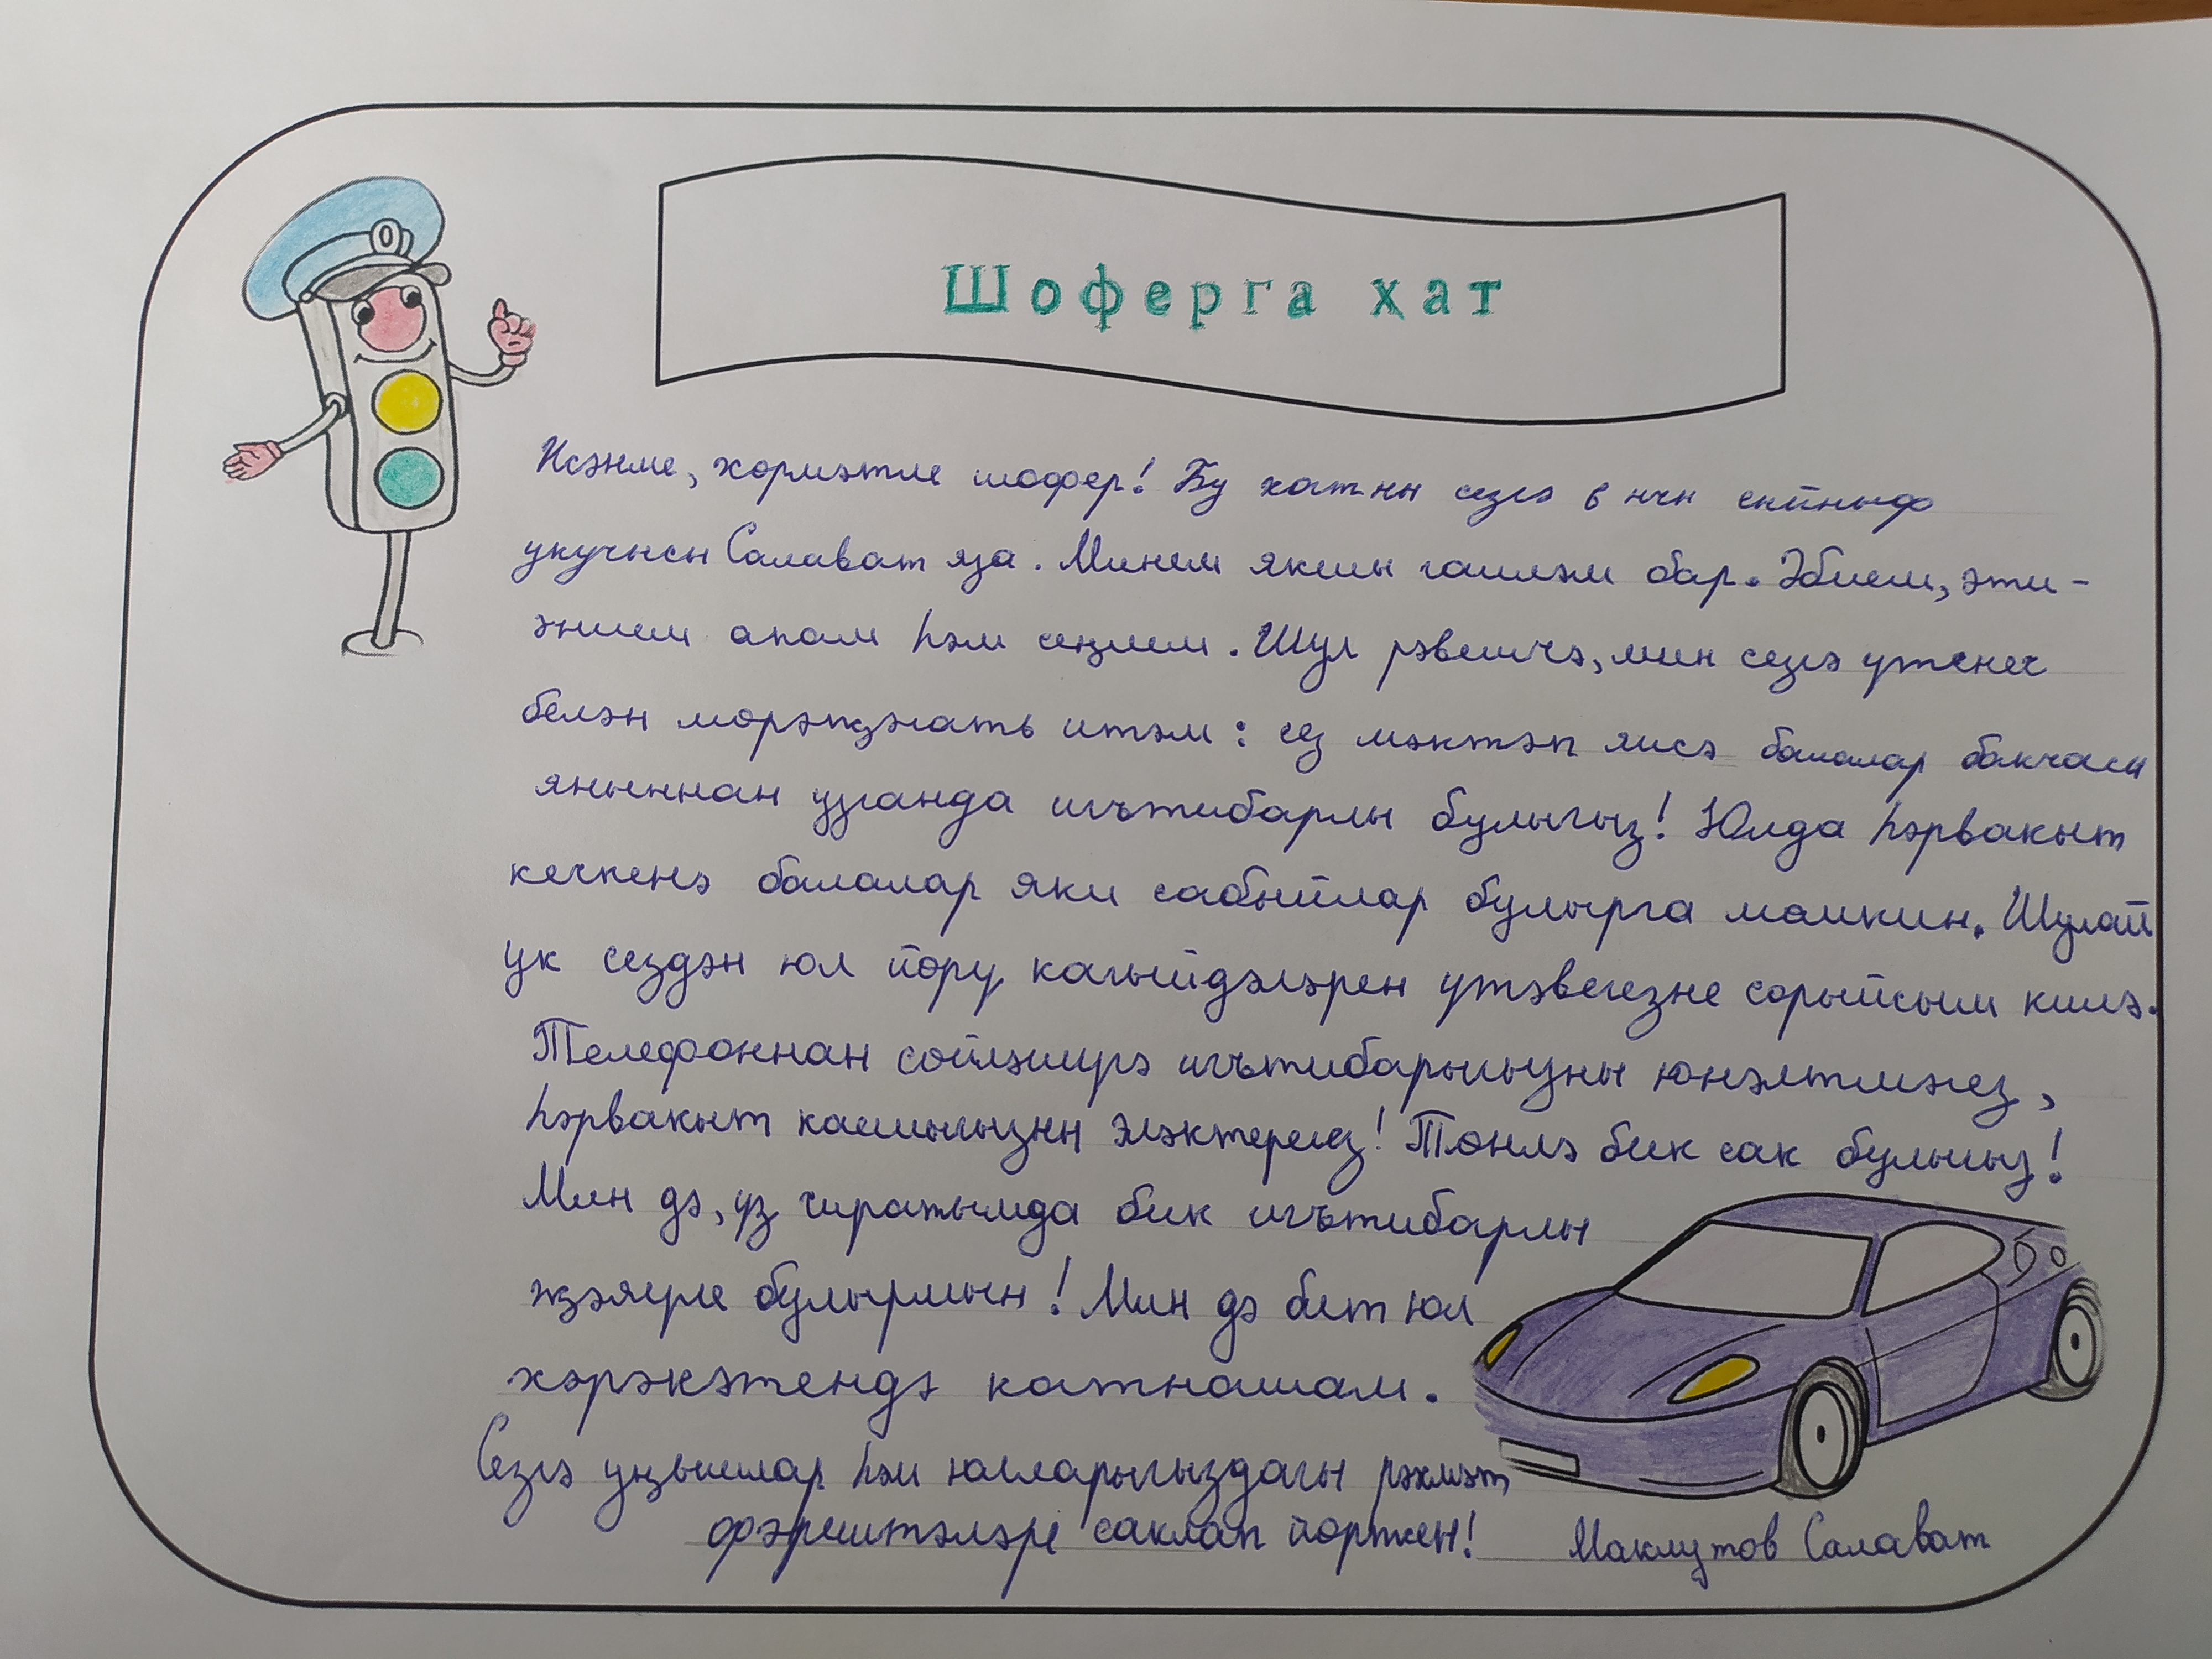 Шоферга хат
Исәнме, хөрмәтле шофер! Бу хатны сезгә 6 нчы сыйныф
укучысы Салават яза. Минем якшы гаиләм бар. Әбием, әти-
әнием апам һәм сеңлем. Шул рәвешчә, мин сезгә үтенеч
белән мөрәҗәгать итәм: сез мәктәп яисә балалар бакчасы
яныннан узганда игътибарлы булыгыз! Юлда һәрвакыт
кечкенә балалар яки сабыйлар булырга мөмкин. Шулай
ук сездән юл йөрү кагыйдәләрен үтәвегезне сорыйсым килә.
Телефоннан сөйләшүгә игътибарыгызны юнәлтмәгез,
һәрвакыт каешыгызны эләктерегез! Төнлә бик сак булыгыз!
Мин дә, үз чиратымда бик игътибарлы
җәяүле булырмын! Мин дә бит юл
хәрәкәтендә катнашам.
Сезгә уңышлар һәм юлларыгыздагы рәхмәт
фәрештәләре саклап йөрткен! Маклутов Салават